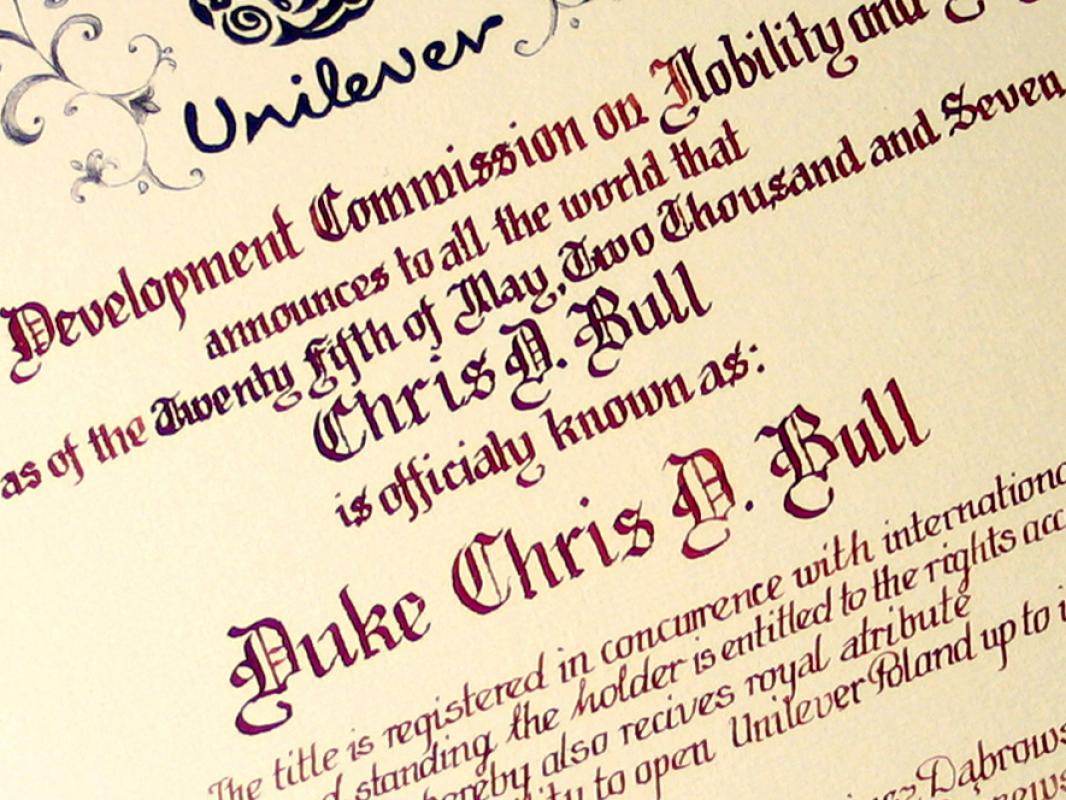 Unilever
Development Commission on Nobility and
announces to all the world that
as of the Twenty Fifth of May, Two Thousand and Seven
Chris D. Bull
is officialy known as:
Duke Chris D. Bull
The title is registered in concurrence with
standing the holder is entitled to the rights
also recives royal atribute
to open Unilever Poland up to
Dąbrows